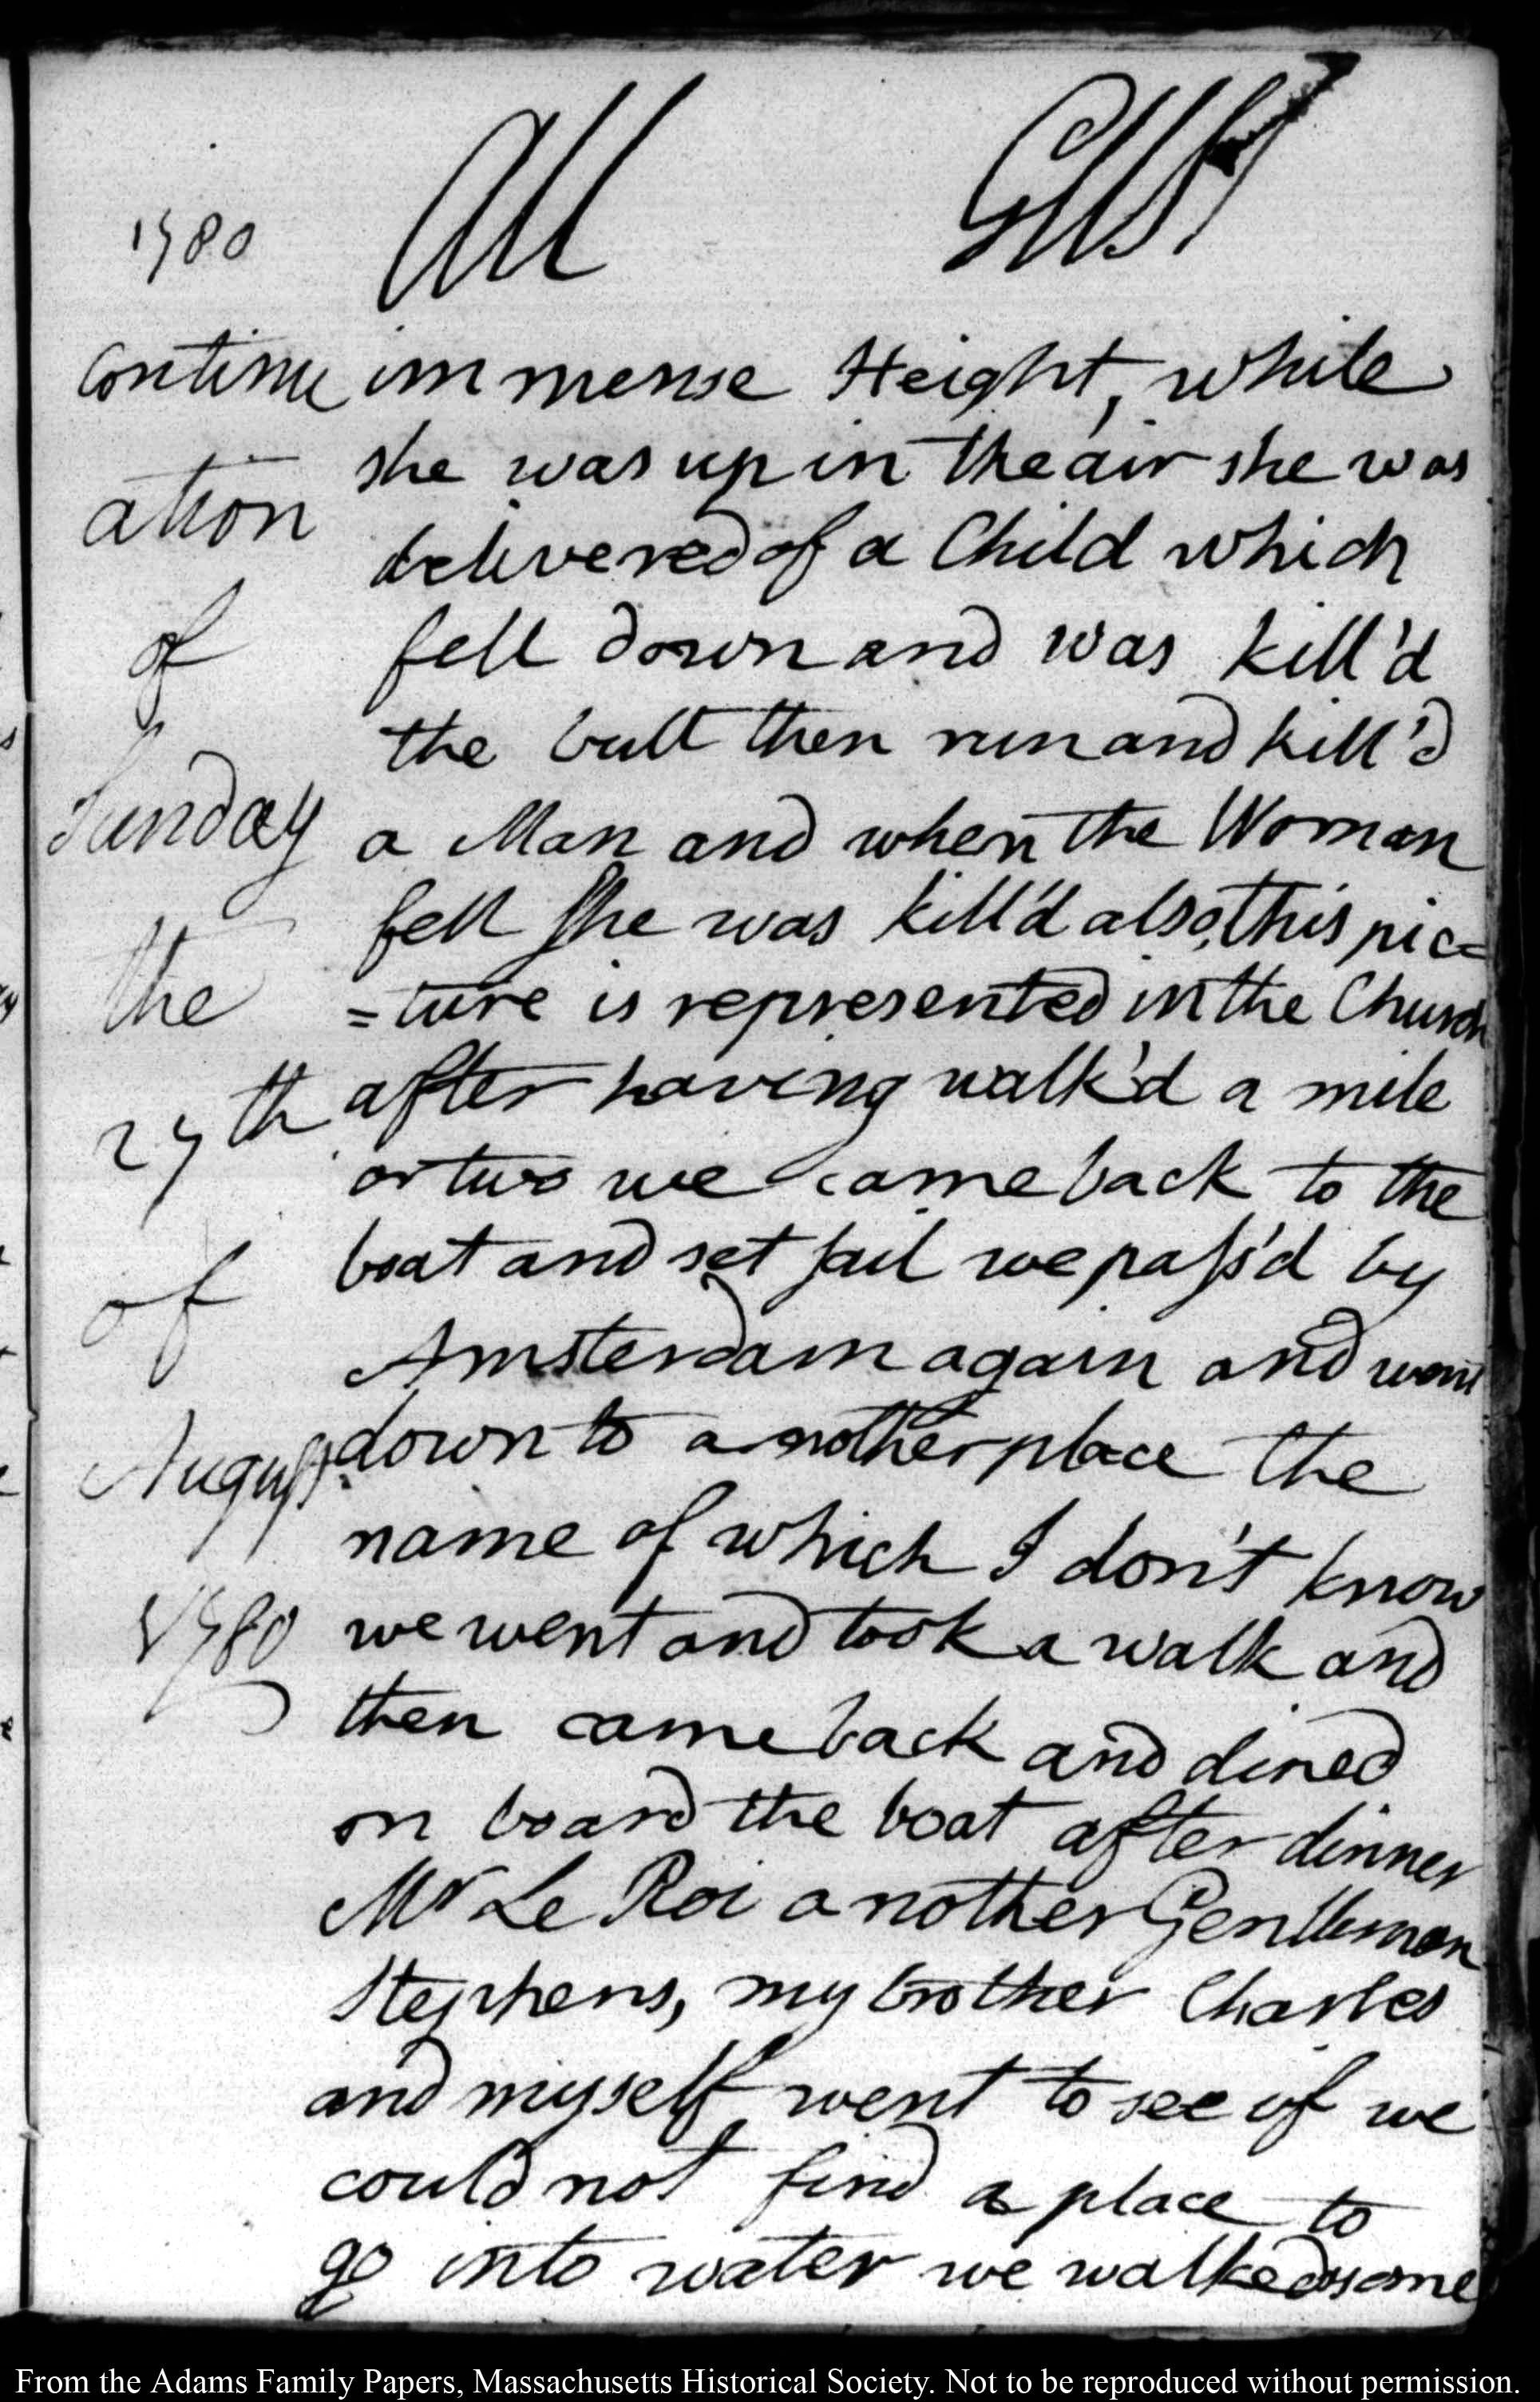 1780
Au
Gust
Continu
ation
of
Sunday
the
27th
of
August
1780
immense Height, while
she was up in the air she was
delivered of a Child which
fell down and was kill'd
the bull then run and kill'd
a Man and when the Woman
fell She was kill'd also, this pic=
=ture is represented in the Church
after having walk'd a mile
or two we came back to the
boat and set sail we pass'd by
Amsterdam again and went
down to another place the
name of which I don't know
we went and took a walk and
then came back and dined
on board the boat after dinner
Mr Le Roi another Gentleman
Stephens, my brother Charles
and myself, went to see if we
could not find a place to
go into water we walked some
From the Adams Family Papers, Massachusetts Historical Society. Not to be reproduced without permission.